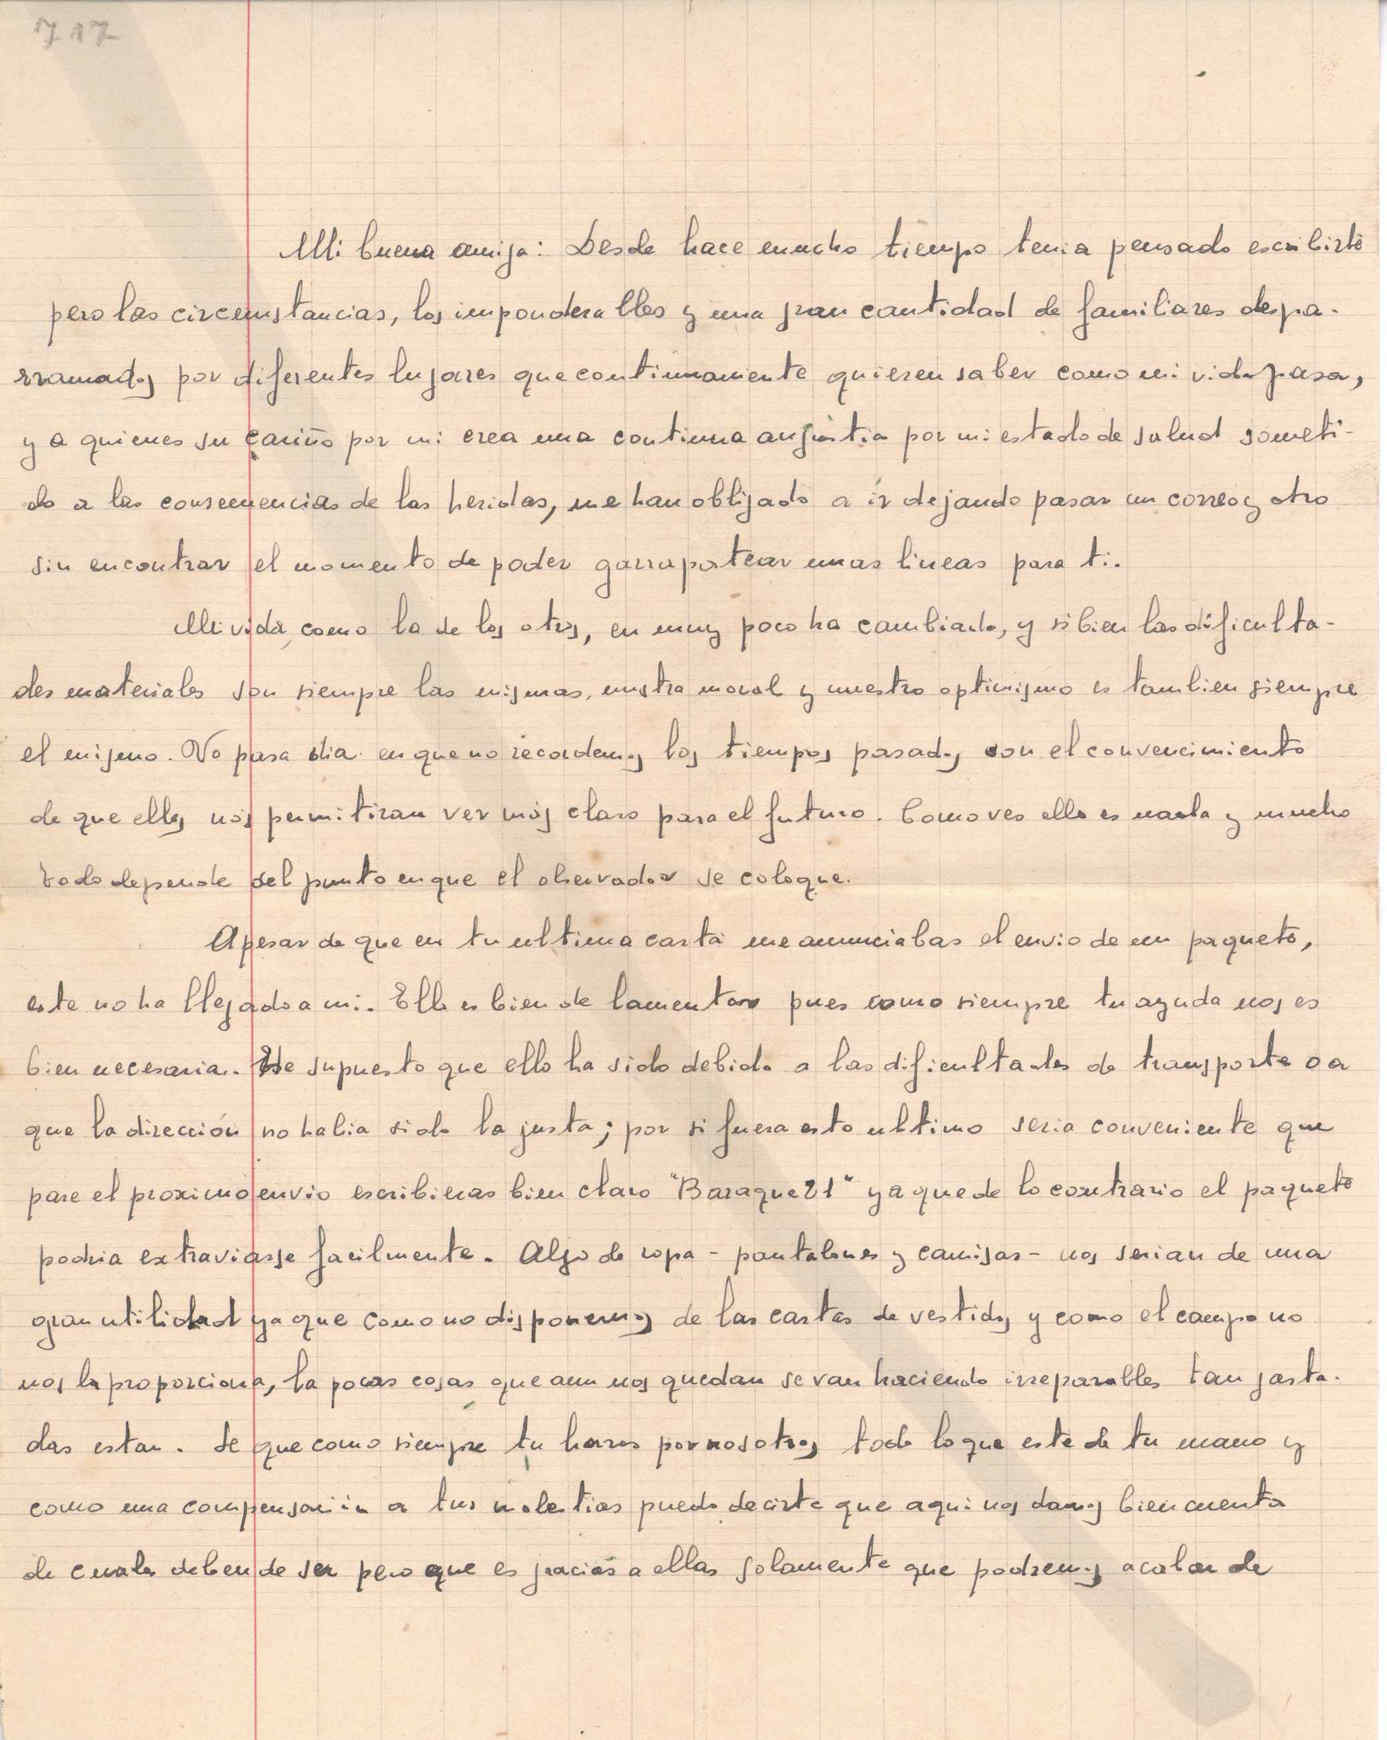 717
Mi buena amiga: Desde hace mucho tiempo tenia pensado escribirte
pero las circumstancias, los imponderalles y una gran cantidad de familiares despa-
rramados por diferentes lugares que continuamente quieren saber como mi vida pasa,
y a quienes su cariño por mi crea una continua angustia por mi estado de salud someti-
do a las consecuencias de las heridas, me han obligado a ir dejando pasar un correo y otro
sin encontrar el momento de poder garrapatear unas lineas para ti.
Mi vida, como la de los otros, en muy poco ha cambiado, y si bien las dificulta-
des materiales son siempre las mismas, nustra moral y nuestro optimismo es tambien siempre
el mismo. No pasa dia en que no recordemos los tiempos pasados con el convencimiento
de que ellos nos permitiran ver más claro para el futuro. Como ves ello es nada y mucho
todo depende del punto en que el observador se coloque.
Apesar de que en tu ultima carta me anunciabas el envio de un paquete,
este no ha llegado a mi. Ello es bien de lamentar pues como siempre tu ayuda nos es
bien necesaria. He supuesto que ello ha sido debido a las dificultades de transporte o a
que la dirección no habia sido la justa; por si fuera esto ultimo seria conveniente que
para el proximo envio escribieras bien claro "Baraque 21" ya que de lo contrario el paquete
podria extraviarse facilmente. Algo de ropa - pantalones y camisas - nos serian de una
gran utilidad ya que como no disponemos de las cartas de vestidos y como el campo no
nos la proporciona, la pocas cosas que aun nos quedan se van haciendo irreparables tan gasta-
das estan. Se que como siempre tu haras por nosotros todo lo que este de tu mano y
como una compensación a tus molestias puedo decirte que aqui nos damos bien cuenta
de cuales deben de ser pero que es gracias a ellas solamente que podremos acabar de